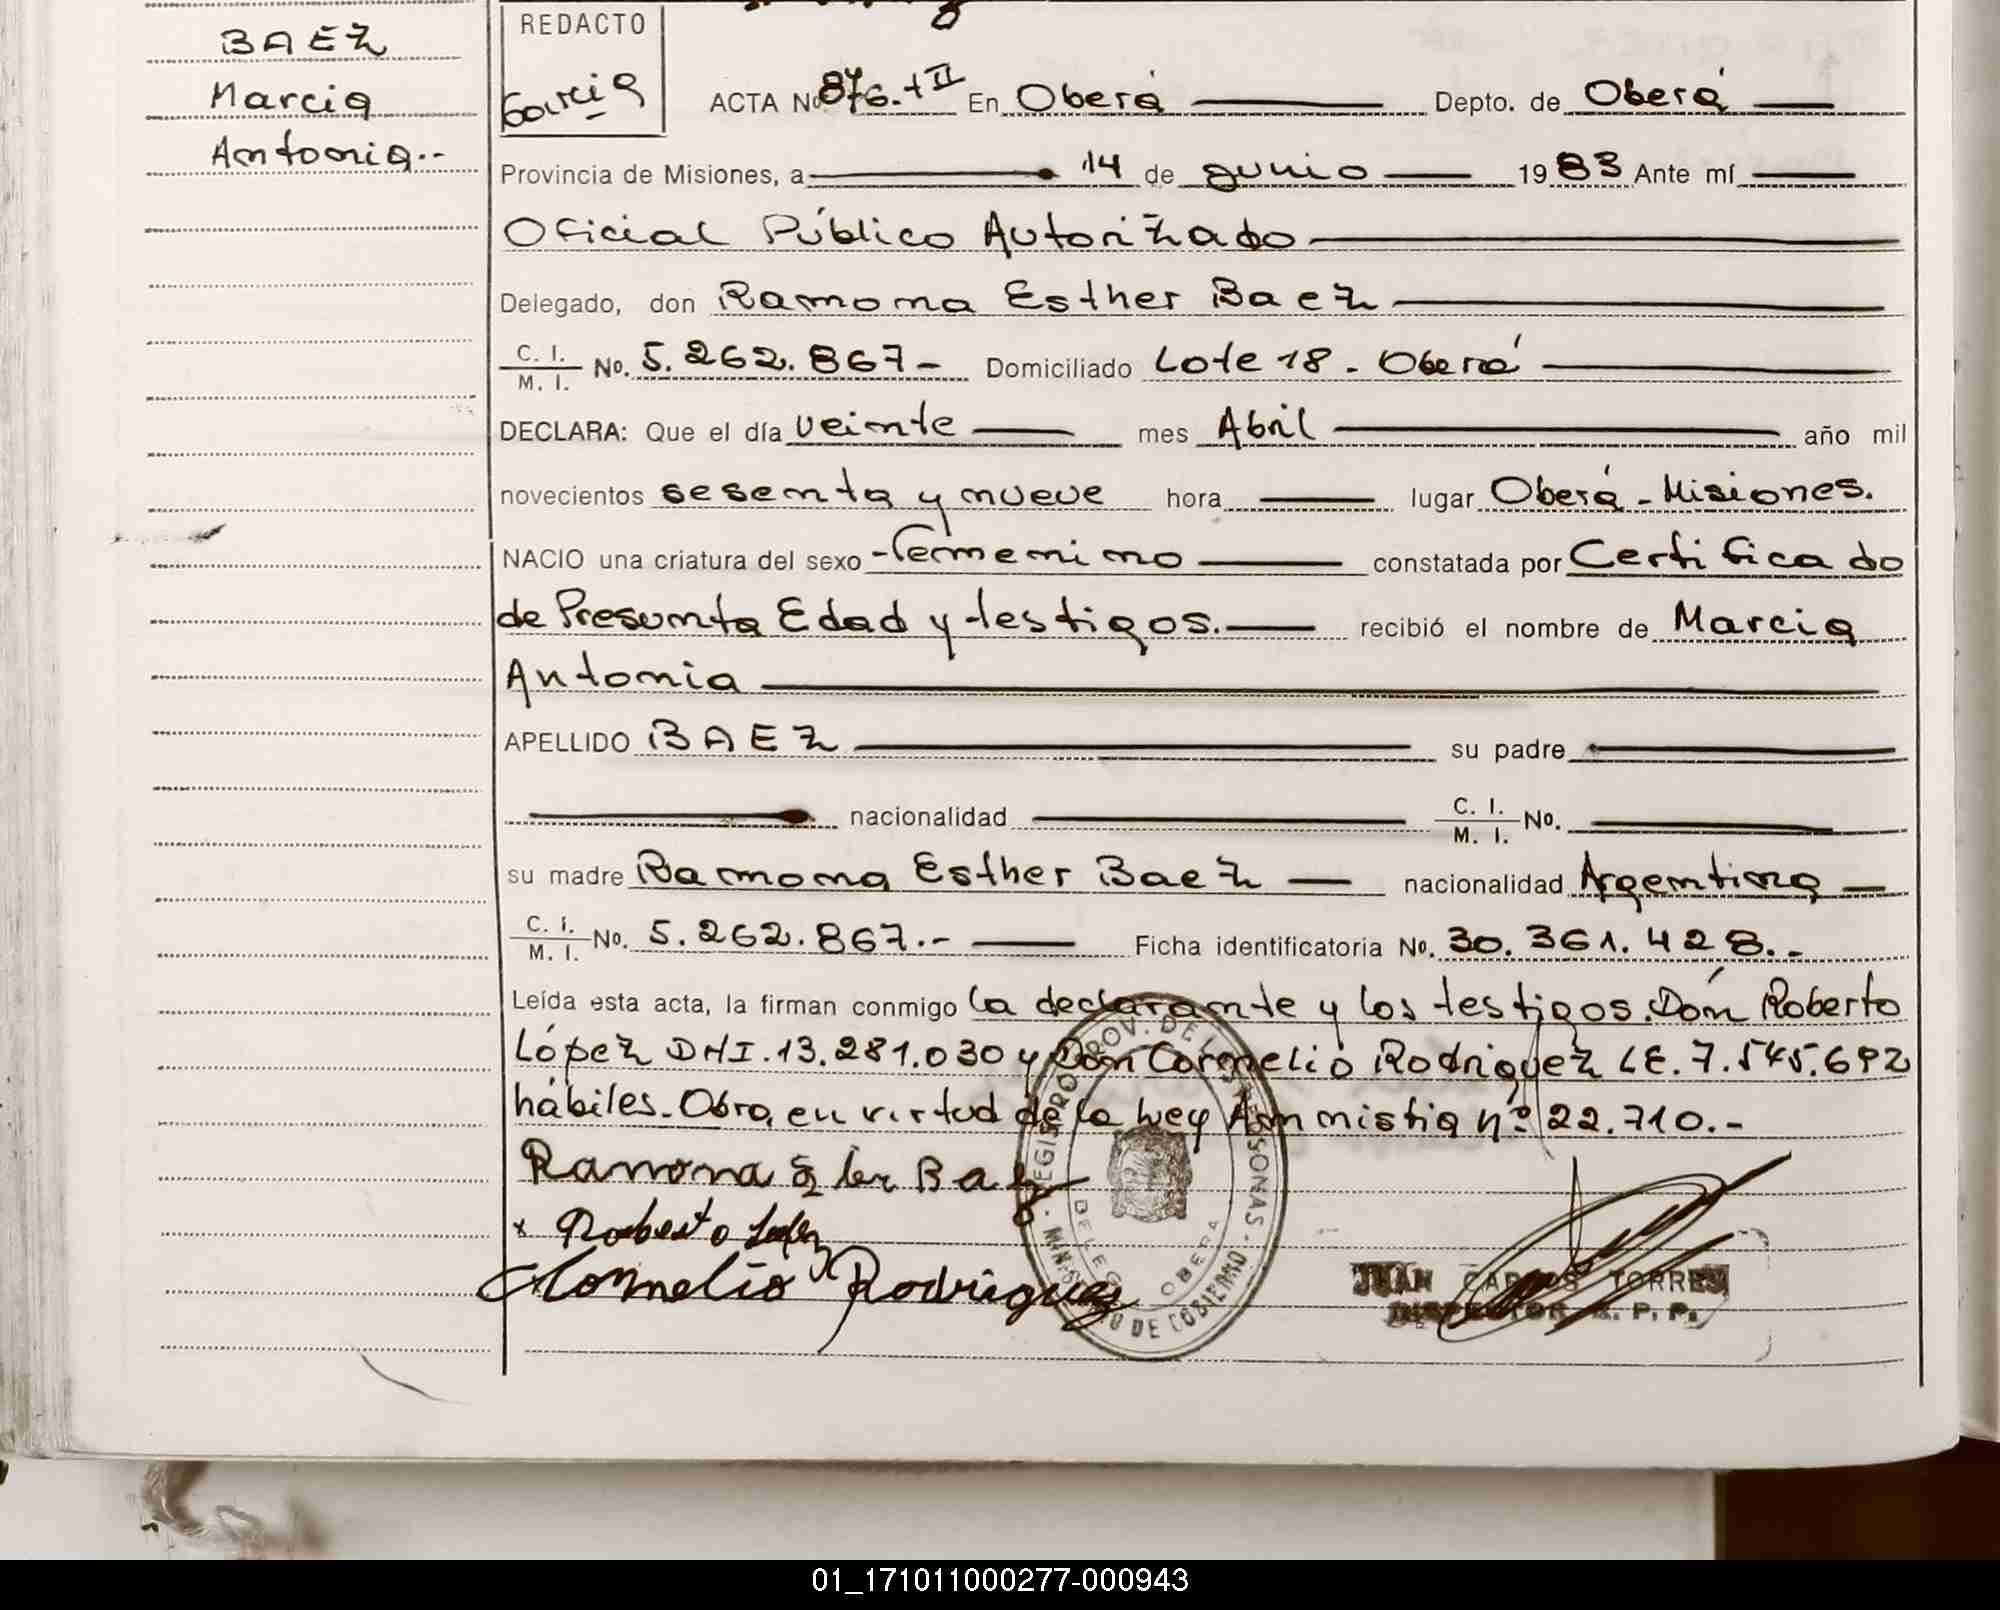 BAEZ
Marcia
Antonia.-
REDACTO
García
ACTA No 876.tII En Oberá Depto. de Oberá
Provincia de Misiones, a 14 de Junio 1983 Ante mí
Oficial Público Autorizado
Delegado, don Ramona Esther Baez
C. I. / M. I. No. 5.262.867- Domiciliado Lote 18 - Oberá
DECLARA: Que el día veinte mes Abril año mil
novecientos sesenta y nueve hora lugar Oberá - Misiones.
NACIO una criatura del sexo femenino constatada por Certificado
de Presunta Edad y testigos.- recibió el nombre de Marcia
Antonia
APELLIDO BAEZ su padre
nacionalidad C. I. / M. I. No.
su madre Ramona Esther Baez nacionalidad Argentina
C. I. / M. I. No. 5.262.867.- Ficha identificatoria No. 30.361.428.-
Leída esta acta, la firman conmigo la declarante y los testigos. Dón Roberto
López DNI.13.281.030 y Dón Cornelio Rodriguez LE.7.545.692
hábiles. Obra en virtud de la Ley Amnistia nº 22.710.-
Ramona Baez
x Roberto Lopez
Cornelio Rodriguez
REGISTRO PROV. DE LAS PERSONAS - MINISTERIO DE GOBIERNO -
DELEG. OBERA
JUAN CARLOS TORRES
INSPECTOR R. P. P.
01_171011000277-000943